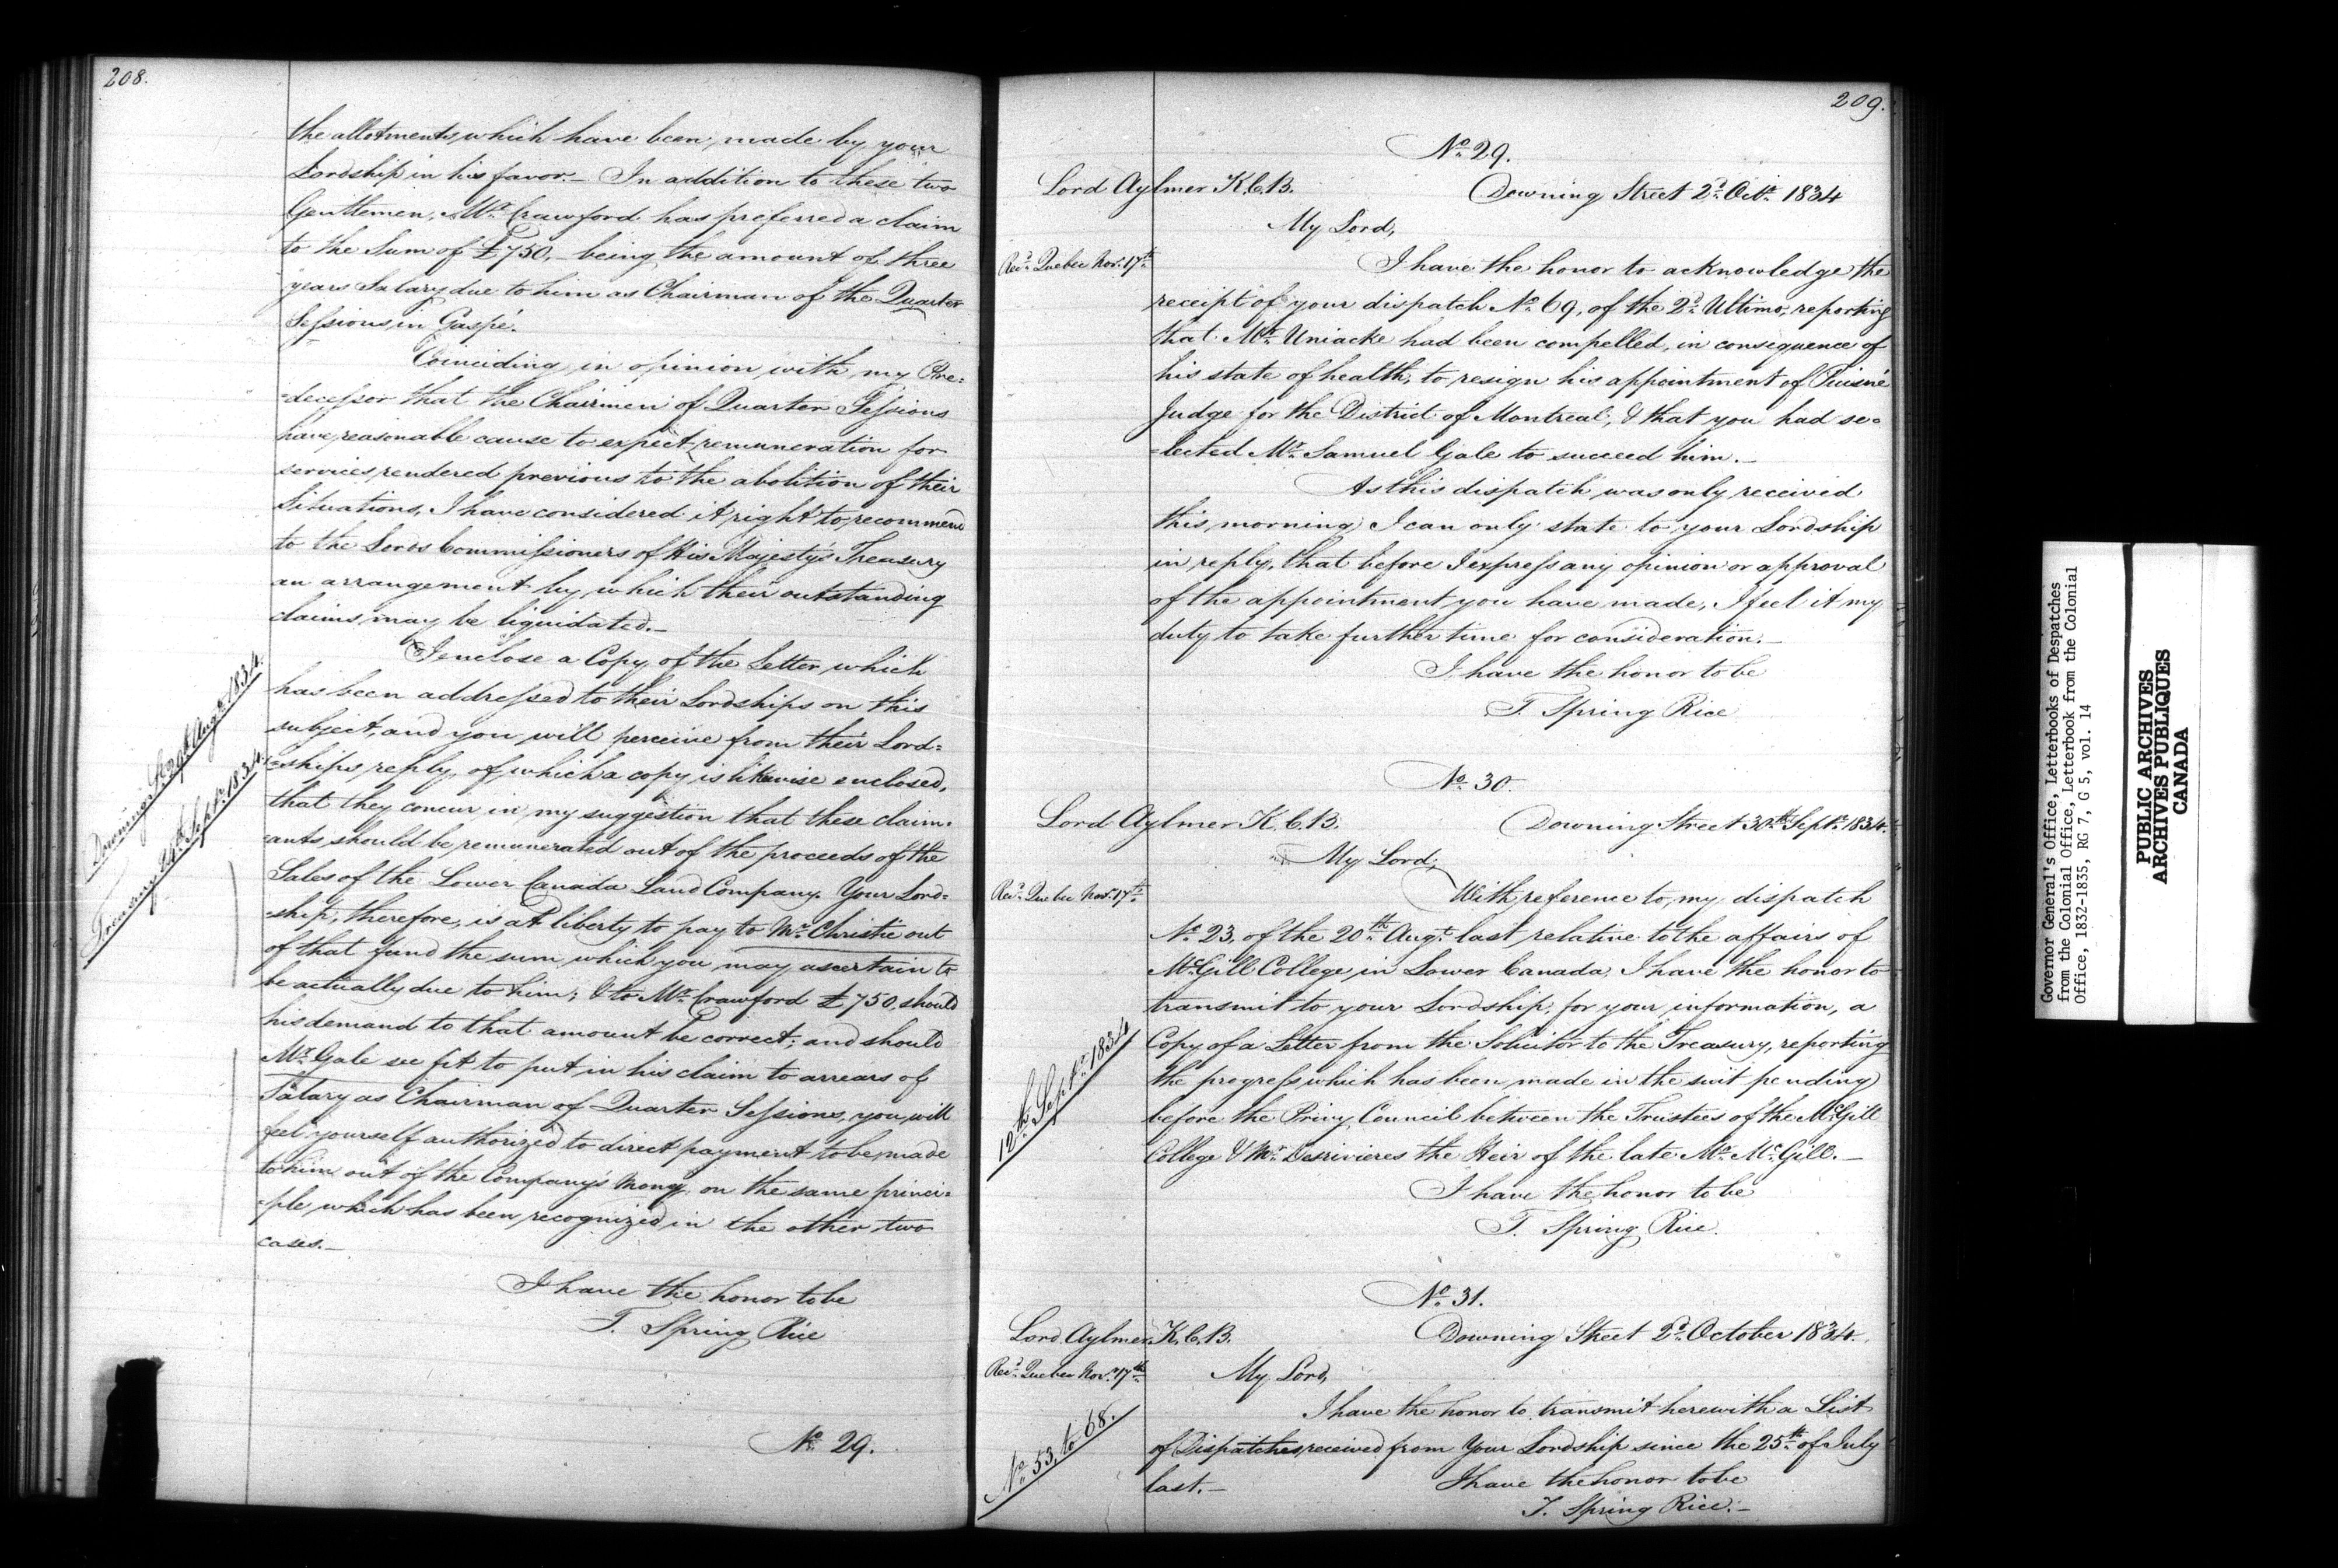 208.
the allotments, which have been, made by your
Lordship in his favor.– In addition to these two
Gentlemen, Mr. Crawford has preferred a claim
to the Sum of £750,– being the amount of three
years Salary due to him as Chairman of the Quarter
Sessions, in Gaspé.
Coinciding, in opinion with my Pre=
=decessor that the Chairmen of Quarter Sessions
have, reasonable cause to expect remuneration for
services, rendered previous to the abolition of their
Situations, I have considered it right to, recommend
to the Lords Commissioners of His Majesty's Treasury
an arrangement by, which their outstanding
claims, may be liquidated.–
I enclose a Copy, of the Letter, which
has been addressed to their Lordships on this
subject, and you will perceive from their Lord=
=ships reply, of which a copy is likewise enclosed,
that they concur in, my suggestion that these claim=
=ants, should be, remunerated out of the proceeds of the
Sales of the Lower Canada Land Company. Your Lord=
=ship, therefore, is at liberty to pay to Mr. Christie out
of that fund the sum, which you may ascertain to
be actually due to him; & to Mr. Crawford £750, should
his demand to that amount be correct; and should
Mr. Gale see fit to put in his claim to arrears of
Salary as Chairman of Quarter Sessions, you, will
feel yourself authorized to direct payment to be, made
to him out of the Company's Money, on the same princi=
=ple, which has been, recognized, in the other two
cases.–
Treasury 24th. Septr. 1834.
I have the honor to be
T. Spring Rice
No. 29.
209.
No. 29.
Lord Aylmer K.C.B.
Downing Street 2d. Octr. 1834
My Lord,
Recd. Quebec Nov. 17th.
I have the honor to acknowledge the
receipt of your dispatch No. 69, of the 2d. Ultimo, reporting
that Mr. Uniacke had been compelled, in consequence of
his state of health, to resign his appointment of Puisné
Judge for the District of Montreal, & that you had se=
=lected Mr. Samuel Gale to succeed him.–
As this dispatch was only received
this, morning I can only state to your Lordship
in reply, that before I express any opinion or approval
of the appointment you have made, I feel it my
duty to take further time for consideration.–
I have the honor to be
T. Spring Rice
No. 30.
Lord Aylmer K.C.B.
Downing Street 30th. Septr. 1834.
My Lord,
Recd. Quebec Nov. 17th.
With reference to, my dispatch
No. 23, of the 20th. Augt. last, relative to the affairs of
McGill College, in Lower Canada, I have the honor to
transmit to your Lordship, for your, information, a
Copy of a Letter from the Solicitor to the Treasury, reporting
the progress which has been, made in the suit pending
before the Privy Council between the Trustees of the McGill
College & Mr. Desrivieres the Heir of the late Mr. McGill.–
12th. Septr. 1834
I have the honor to be
T. Spring Rice.
No. 31.
Lord Aylmer K.C.B.
Downing Street 2d. October 1834.
Recd. Quebec Nov. 17th.
My Lord,
I have the honor to transmit herewith a List
of Dispatches received from Your Lordship since the 25th. of July
last.–
No. 53, to 68.
I have the honor to be
T. Spring Rice.–
Governor General's Office, Letterbooks of Despatches
from the Colonial Office, Letterbook from the Colonial
Office, 1832-1835, RG 7, G 5, vol. 14
PUBLIC ARCHIVES
ARCHIVES PUBLIQUES
CANADA